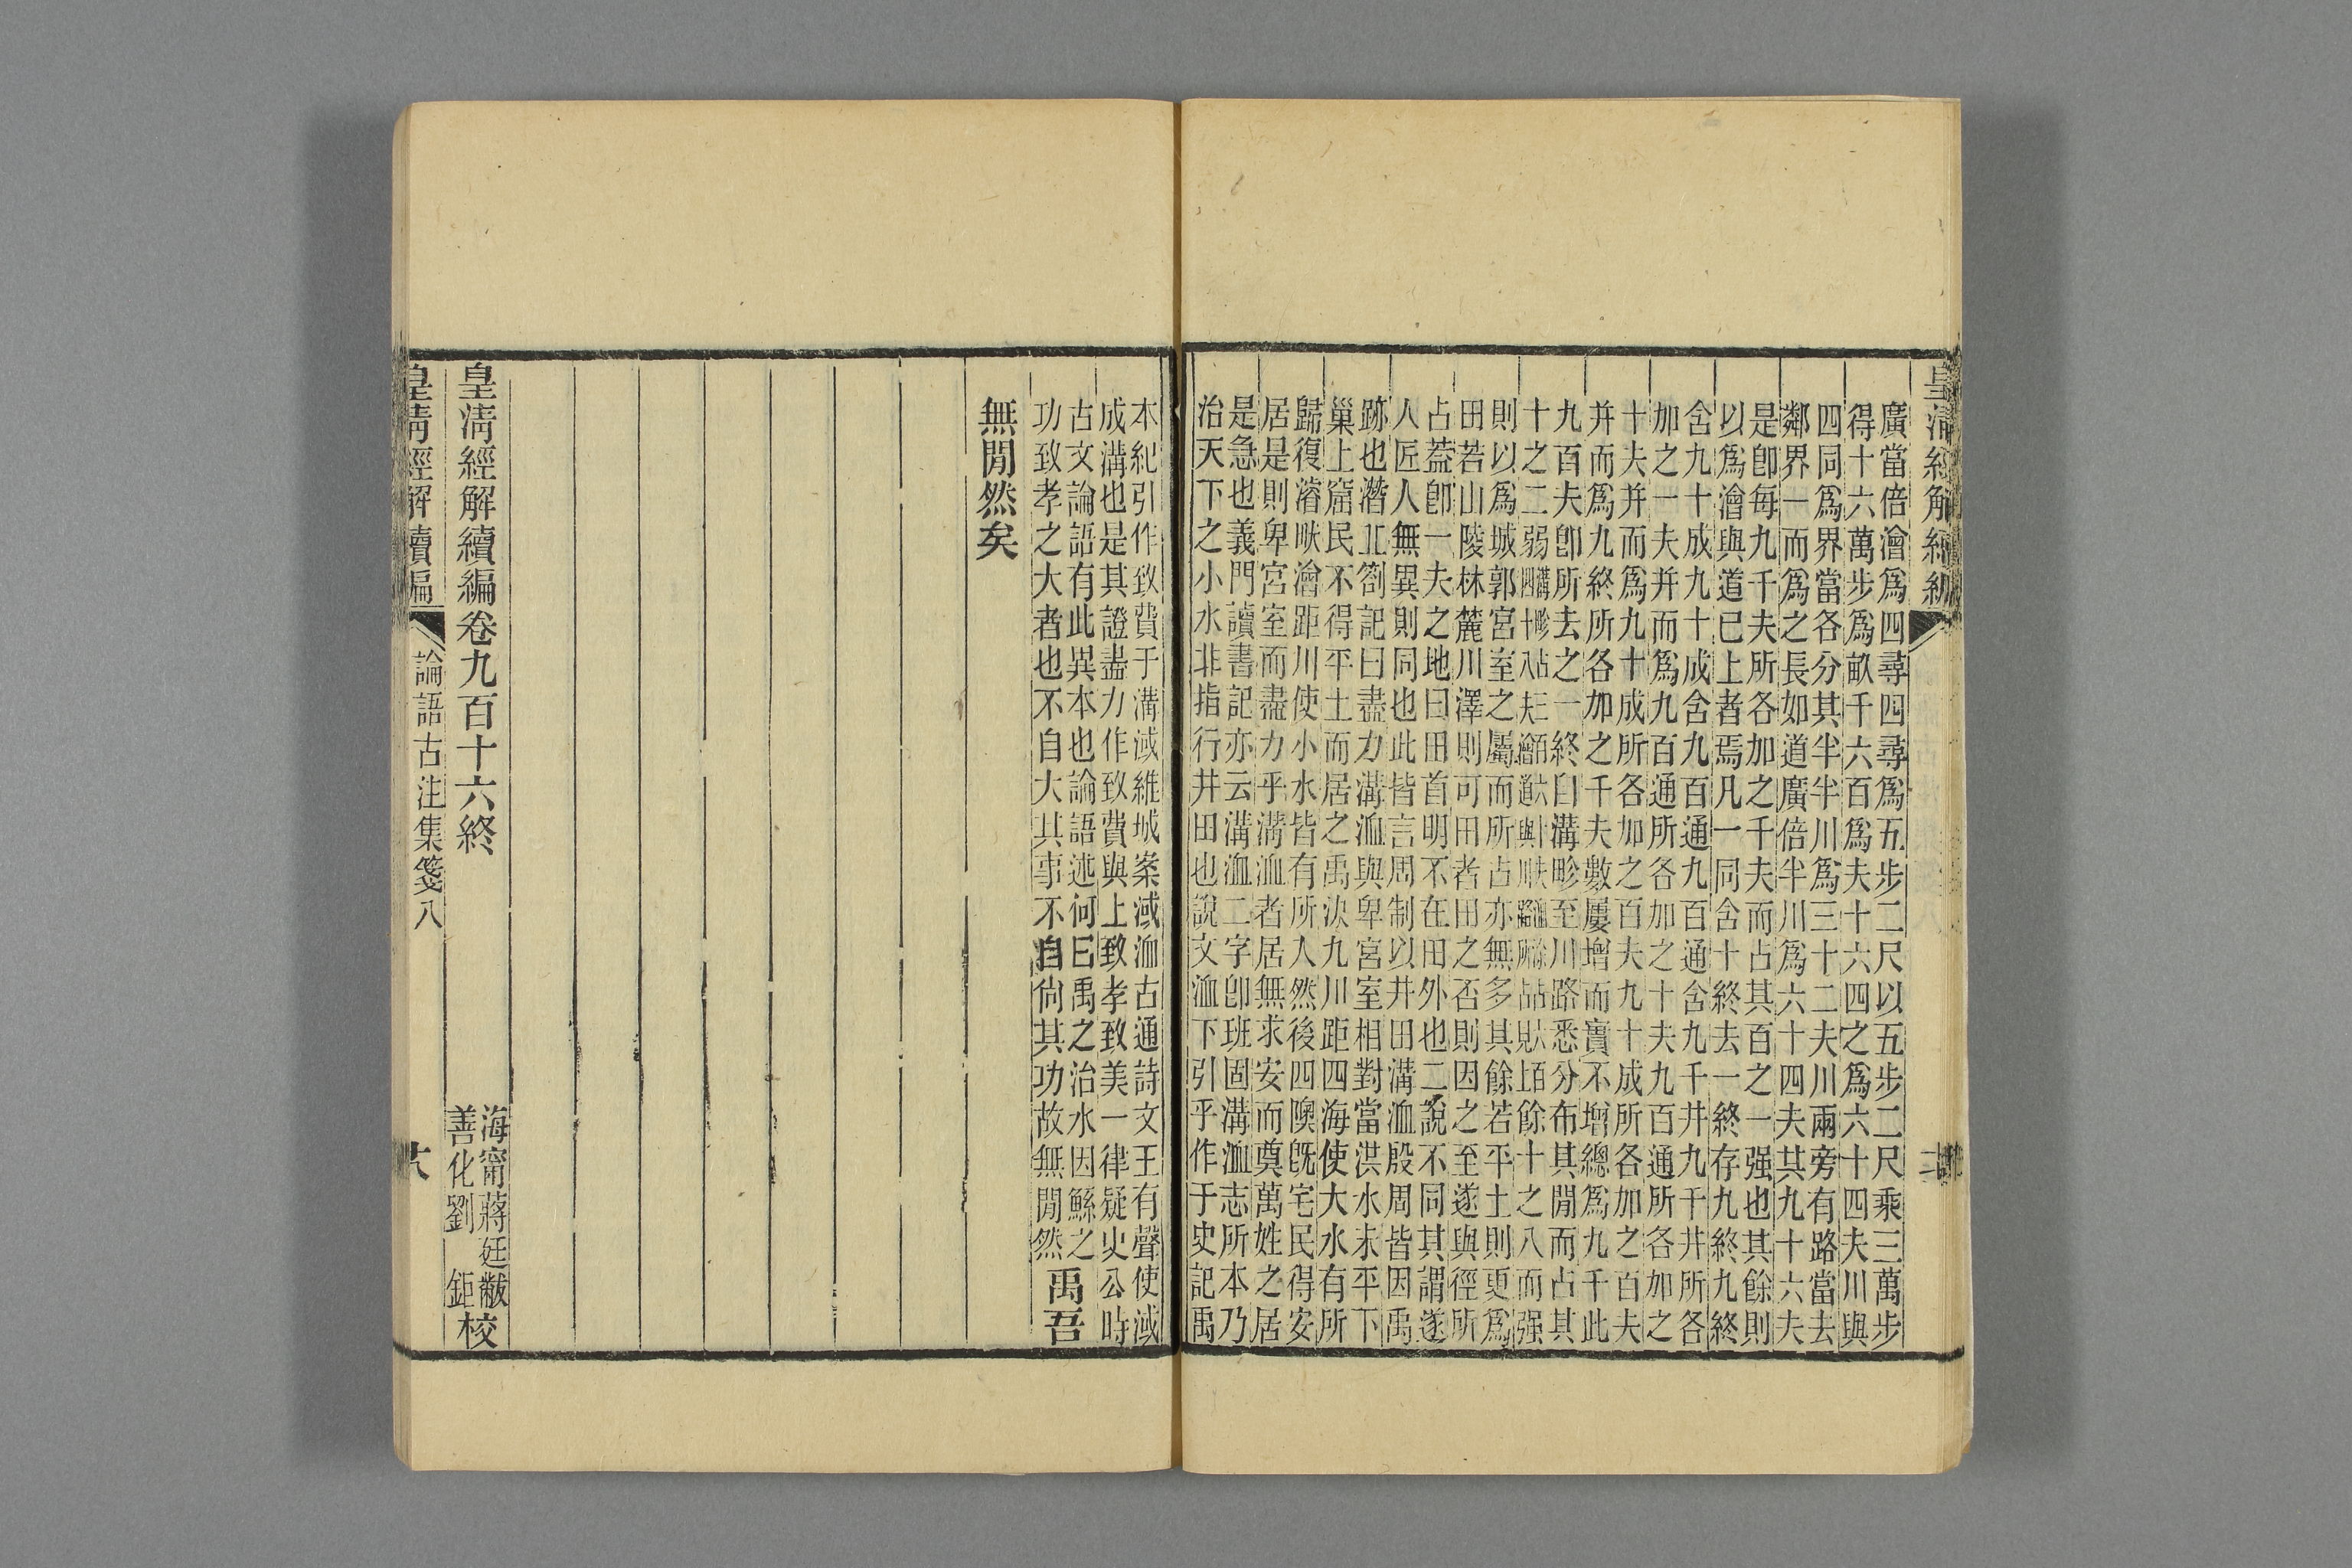 皇清經解續編
廣當倍澮爲四尋四尋爲五步二尺以五步二尺乘三萬步
得十六萬步爲畝千六百爲夫十六四之爲六十四夫川與
四同爲界當各分其半半川爲三十二夫川兩旁有路當去
鄰界一而爲之長如道廣倍半川爲六十四夫其九十六夫
是卽每九千夫所各加之千夫而占其百之一强也其餘則
以爲澮與道已上者焉凡一同含十終去一終存九終九終
含九十成九十成含九百通九百通含九千井九千井所各
加之一夫并而爲九百通所各加之十夫九百通所各加之
十夫并而爲九十成所各加之百夫九十成所各加之百夫
并而爲九終所各加之千夫數屢增而實不增總爲九千此
九百夫卽所去之一終曰溝畛至川路悉分布其閒而占其
十之二弱
十之八而强
則以爲城郭宮室之屬而所占亦無多其餘若平土則更爲
田若山陵林麓川澤則可田者田之否則因之至遂與徑所
占蓋卽一夫之地曰田首明不在田外也二說不同其謂遂
人匠人無異則同也此皆言周制以井田溝洫殷周皆因禹
跡也潛丘劄記曰盡力溝洫與卑宮室相對當洪水未平下
巢上窟民不得平土而居之禹決九川距四海使大水有所
歸復濬畎澮距川使小水皆有所入然後四隩旣宅民得安
居是則卑宮室而盡力乎溝洫者居無求安而奠萬姓之居
是急也義門讀書記亦云溝洫二字卽班固溝洫志所本乃
治天下之小水非指行井田也說文洫下引乎作于史記禹
本紀引作致費于溝淢維城案淢洫古通詩文王有聲使淢
成溝也是其證盡力作致費與上致孝致美一律疑史公時
古文論語有此異本也論語述何曰禹之治水因鯀之
功致孝之大者也不自大其事不自尚其功故無閒然
禹吾
無閒然矣
皇淸經解續編卷九百十六終
海甯蔣廷黻
善化劉 鉅
校
皇清經解續編
論語古注集箋八